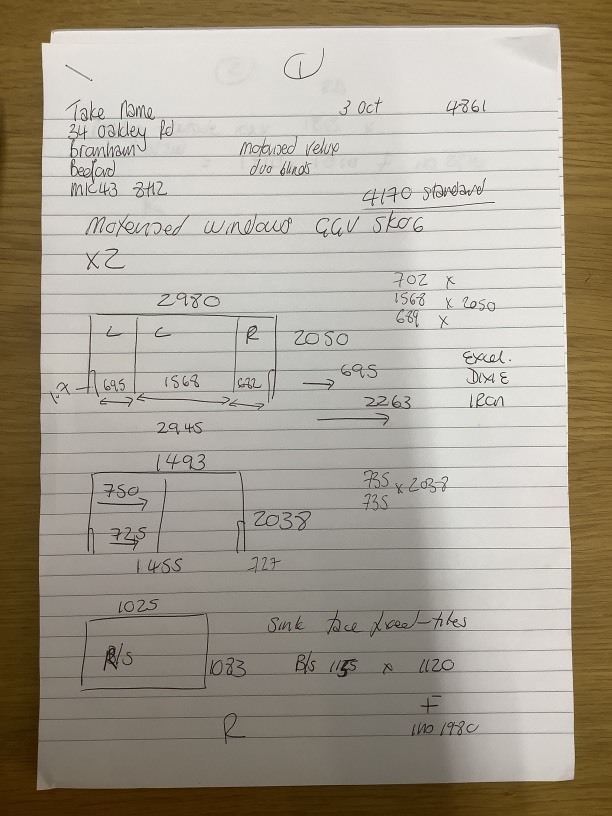 1
Take Name 3 Oct 4861
34 Oakley Rd
Bromham
Bedford
duo blinds
MK43 8H2
4170 standard
windows GGV SK06
x2
2980
702 x
1568 x 2050
689 x
L C R 2050
695 1568 682
695
Excel.
DIXIE
IRON
2263
2945
1493
750
735 x 2038
735
2038
725
1455 727
1025
Sink face
B/S 1083 B/S 1155 x 1120
+
R